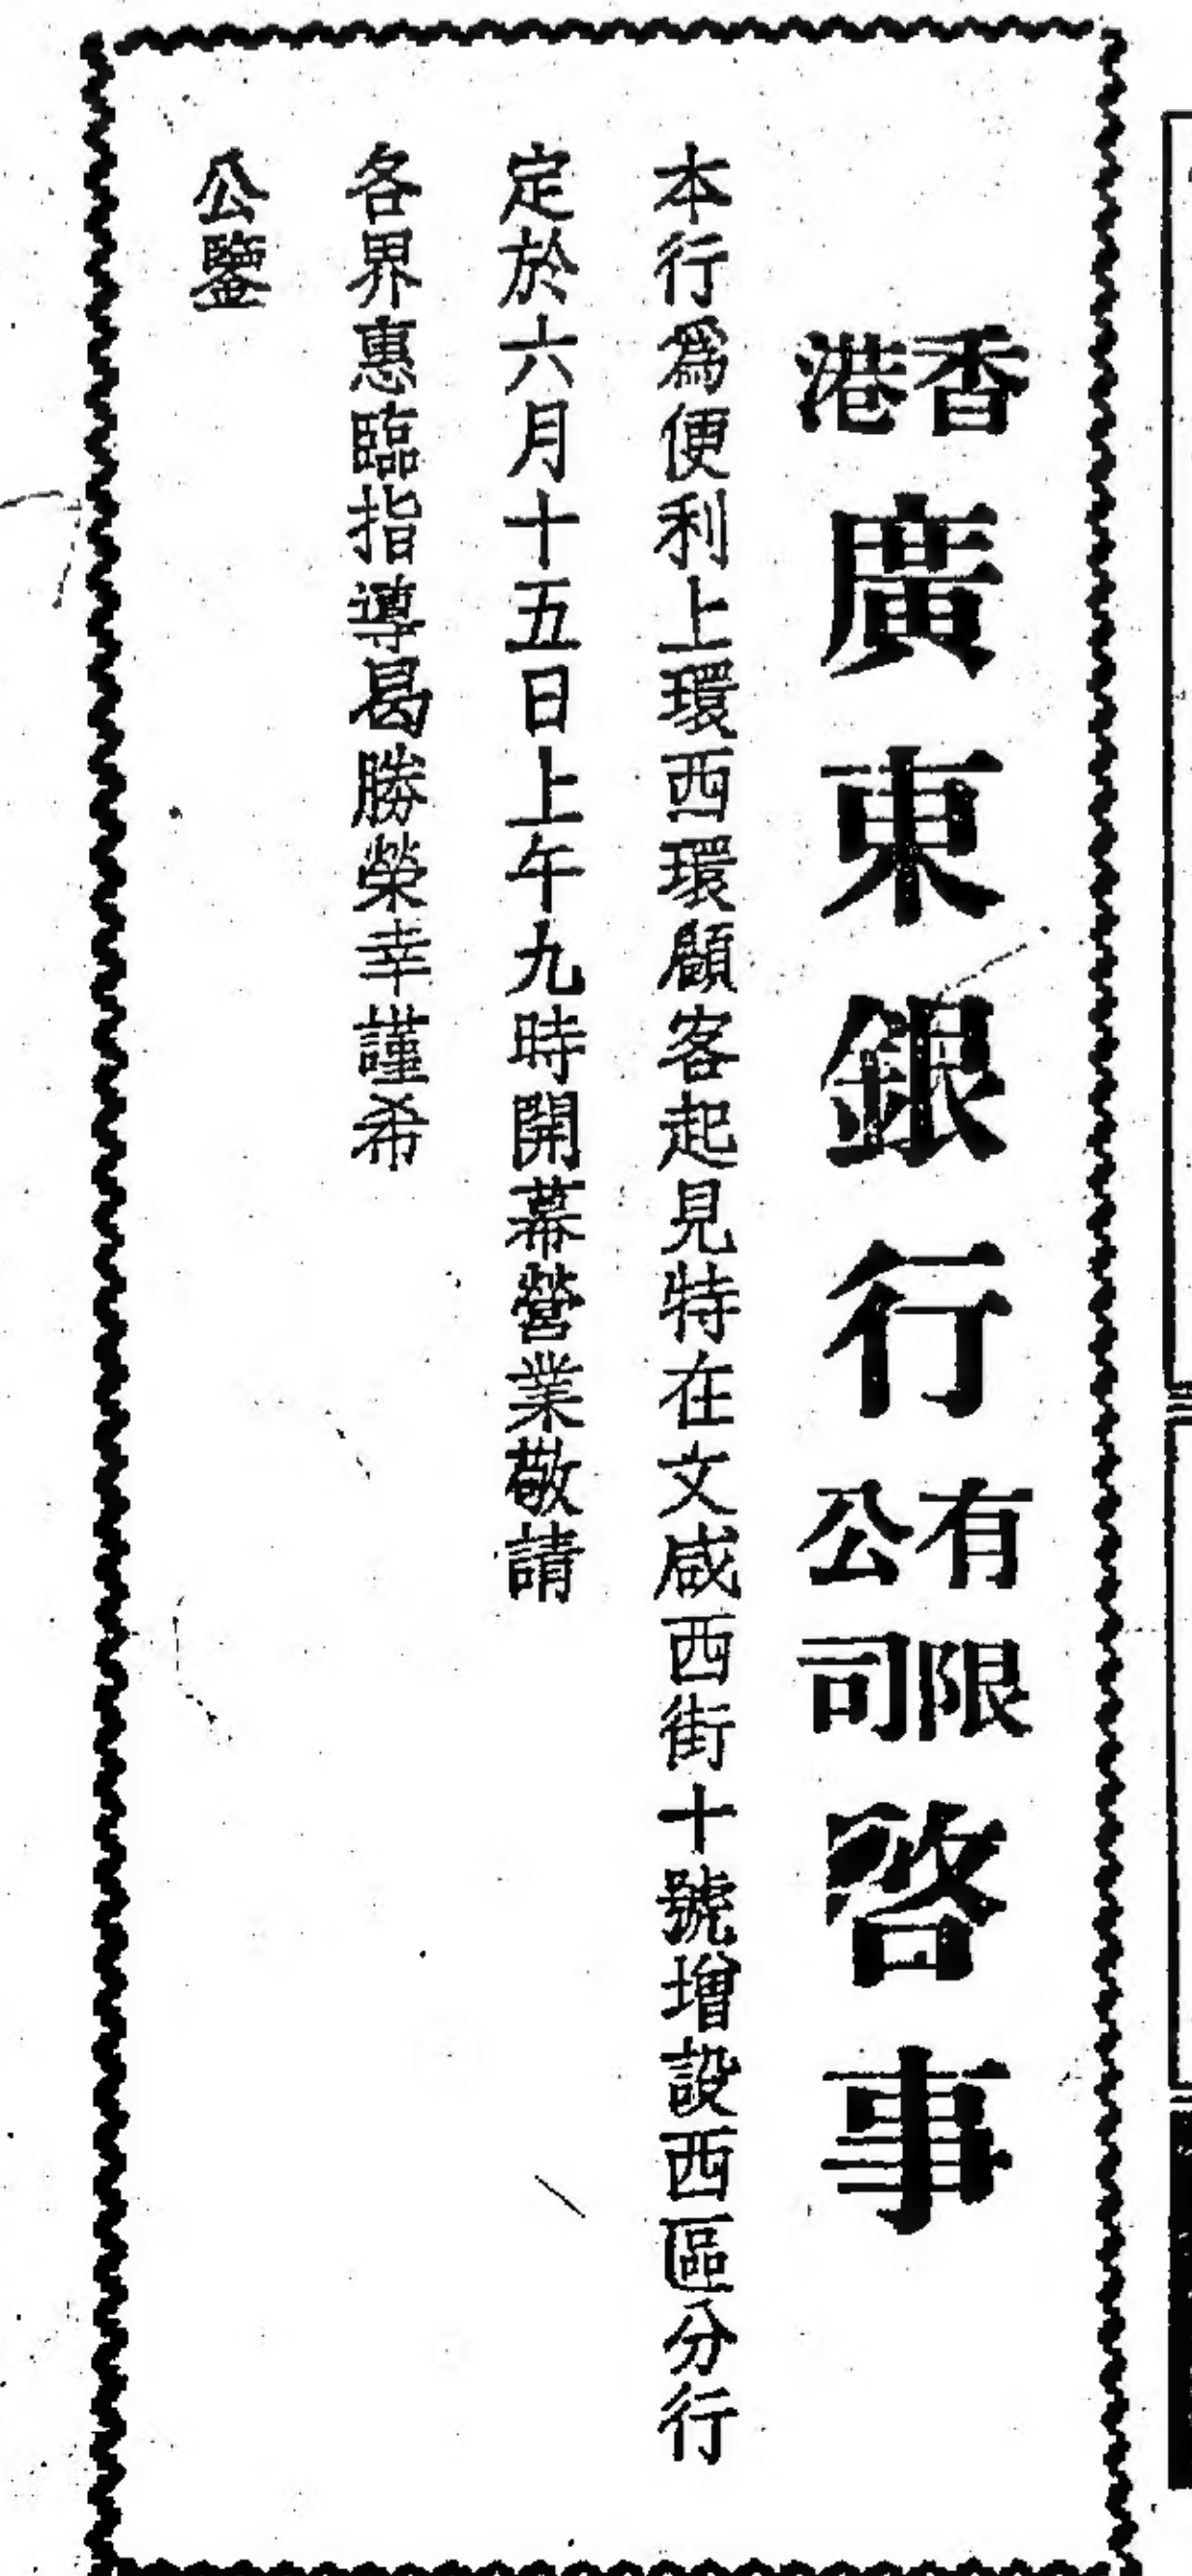 香港廣東銀行有限公司啓事
本行爲便利上環西環顧客起見特在文咸西街十號增設西區分行
定於六月十五日上午九時開幕營業敬請
各界惠臨指導曷勝榮幸謹希
公鑒